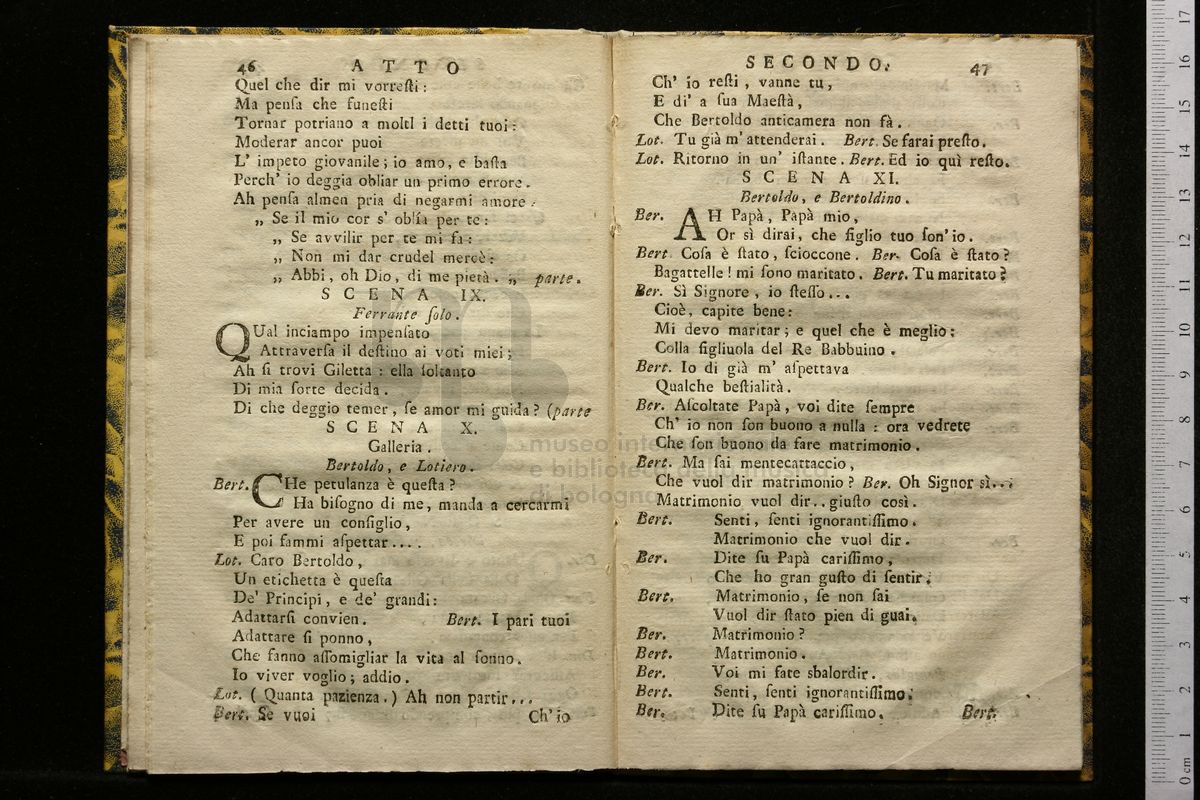 46 ATTO
Quel che dir mi vorreſti:
Ma penſa che funeſti
Tornar potriano a moltI i detti tuoi:
Moderar ancor puoi
L' impeto giovanile; io amo, e baſta
Perch' io deggia obliar un primo errore.
Ah penſa almen pria di negarmi amore:
„ Se il mio cor s' oblía per te:
„ Se avvilir per te mi fa:
„ Non mi dar crudel mercè:
„ Abbi, oh Dio, di me pietà. „ parte.
SCENA IX.
Ferrante ſolo.
QUal inciampo impenſato
Attraverſa il deſtino ai voti miei;
Ah ſi trovi Giletta: ella ſoltanto
Di mia ſorte decida.
Di che deggio temer, ſe amor mi guida? (parte
SCENA X.
Galleria.
Bertoldo, e Lotiero.
Bert. CHe petulanza è queſta?
Ha biſogno di me, manda a cercarmi
Per avere un conſiglio,
E poi fammi aſpettar....
Lot. Caro Bertoldo,
Un etichetta è queſta
De' Principi, e de' grandi:
Adattarſi convien. Bert. I pari tuoi
Adattare ſi ponno,
Che fanno aſſomigliar la vita al ſonno.
Io viver voglio; addio.
Lot. (Quanta pazienza.) Ah non partir...
Bert. Se vuoi Ch' io
SECONDO. 47
Ch' io reſti, vanne tu,
E di' a ſua Maeſtà,
Che Bertoldo anticamera non fà.
Lot. Tu già m' attenderai. Bert. Se farai preſto.
Lot. Ritorno in un' iſtante. Bert. Ed io quì reſto.
SCENA XI.
Bertoldo, e Bertoldino.
Ber. AH Papà, Papà mio,
Or sì dirai, che figlio tuo ſon' io.
Bert. Coſa è ſtato, ſcioccone. Ber. Coſa è ſtato?
Bagattelle! mi ſono maritato. Bert. Tu maritato?
Ber. Sì Signore, io ſteſſo...
Cioè, capite bene:
Mi devo maritar; e quel che è meglio:
Colla figliuola del Re Babbuino.
Bert. Io di già m' aſpettava
Qualche beſtialità.
Ber. Aſcoltate Papà, voi dite ſempre
Ch' io non ſon buono a nulla: ora vedrete
Che ſon buono da fare matrimonio.
Bert. Ma ſai mentecattaccio,
Che vuol dir matrimonio? Ber. Oh Signor sì...
Matrimonio vuol dir.. giuſto così.
Bert. Senti, ſenti ignorantiſſimo.
Matrimonio che vuol dir.
Ber. Dite ſu Papà cariſſimo,
Che ho gran guſto di ſentir.
Bert. Matrimonio, ſe non ſai
Vuol dir ſtato pien di guai.
Ber. Matrimonio?
Bert. Matrimonio.
Ber. Voi mi fate sbalordir.
Bert. Senti, ſenti ignorantiſſimo.
Ber. Dite ſu Papà cariſſimo. Bert.